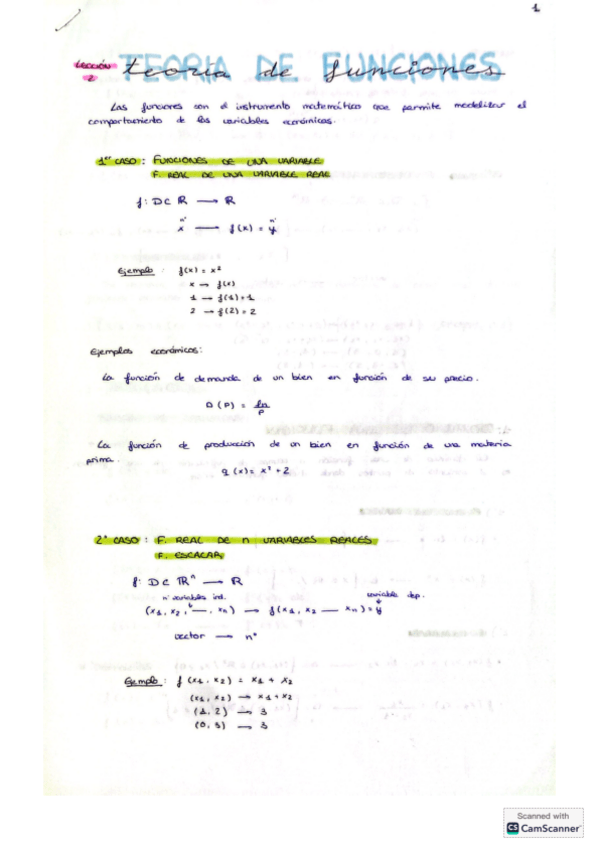 1
Lección 2
TEORIA DE FUNCIONES
teoría de funciones
Las funciones son el instrumento matemático que permite modelizar el
comportamiento de las variables económicas.
1er CASO : FUNCIONES DE UNA VARIABLE
F. REAL DE UNA VARIABLE REAL
f: D ⊂ ℝ ⟶ ℝ
nº nº
x ⟶ f(x) = y
Ejemplo : f(x) = x²
x → f(x)
1 → f(1) = 1
2 → f(2) = 2
Ejemplos económicos:
La función de demanda de un bien en función de su precio.
D(P) =
La función de producción de un bien en función de una materia
prima.
q(x) = x² + 2
2º CASO : F. REAL DE n VARIABLES REALES
F. ESCALAR
f: D ⊂ ℝⁿ ⟶ ℝ
nº variables ind. variable dep.
(x1, x2, —, xn) ⟶ f(x1, x2 — xn) = y
vector ⟶ nº
Ejemplo : f(x1, x2) = x1 + x2
(x1, x2) → x1 + x2
(1, 2) → 3
(0, 3) → 3
Scanned with
CS CamScanner